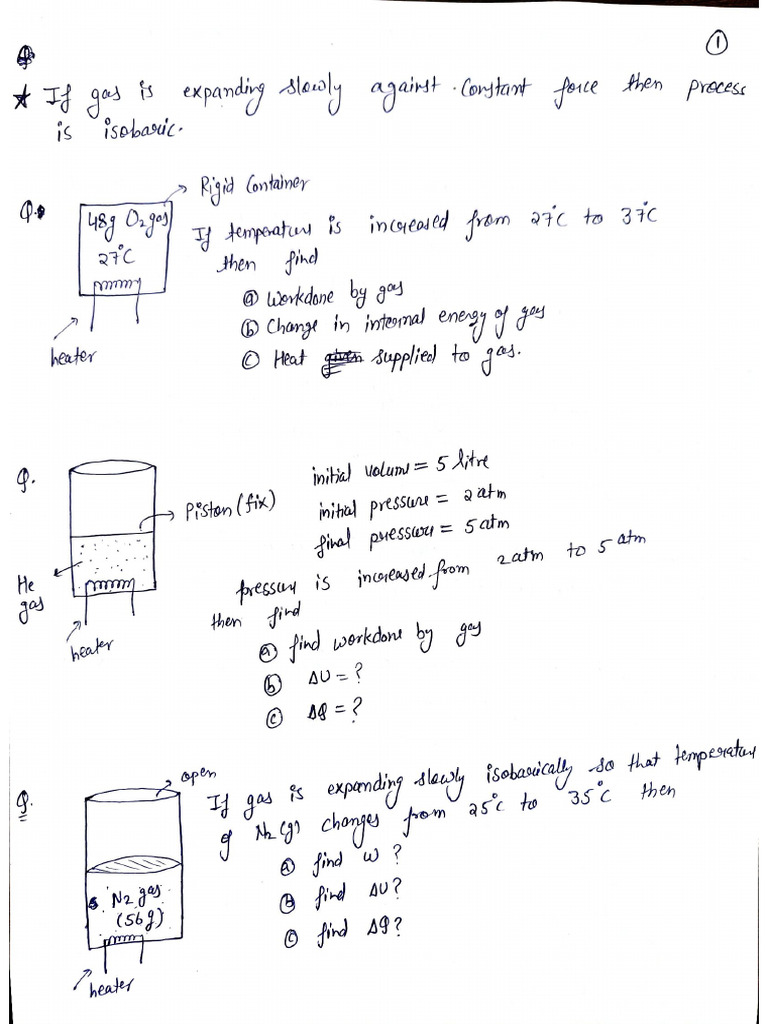 ①
★ If gas is expanding slowly against constant force then process
is isobaric.
Q. 48g O₂ gas
27°C
→ Rigid Container
heater
If temperature is increased from 27°C to 37°C
then find
ⓐ Workdone by gas
ⓑ Change in internal energy of gas
ⓒ Heat supplied to gas.
Q.
→ Piston (fix)
He
gas
heater
initial volume = 5 litre
initial pressure = 2 atm
final pressure = 5 atm
pressure is increased from 2 atm to 5 atm
then find
ⓐ find workdone by gas
ⓑ ΔU = ?
ⓒ ΔQ = ?
Q.
open
N₂ gas
(56g)
heater
If gas is expanding slowly isobarically so that temperature
of N₂(g) changes from 25°C to 35°C then
ⓐ find W ?
ⓑ find ΔU?
ⓒ find ΔQ?